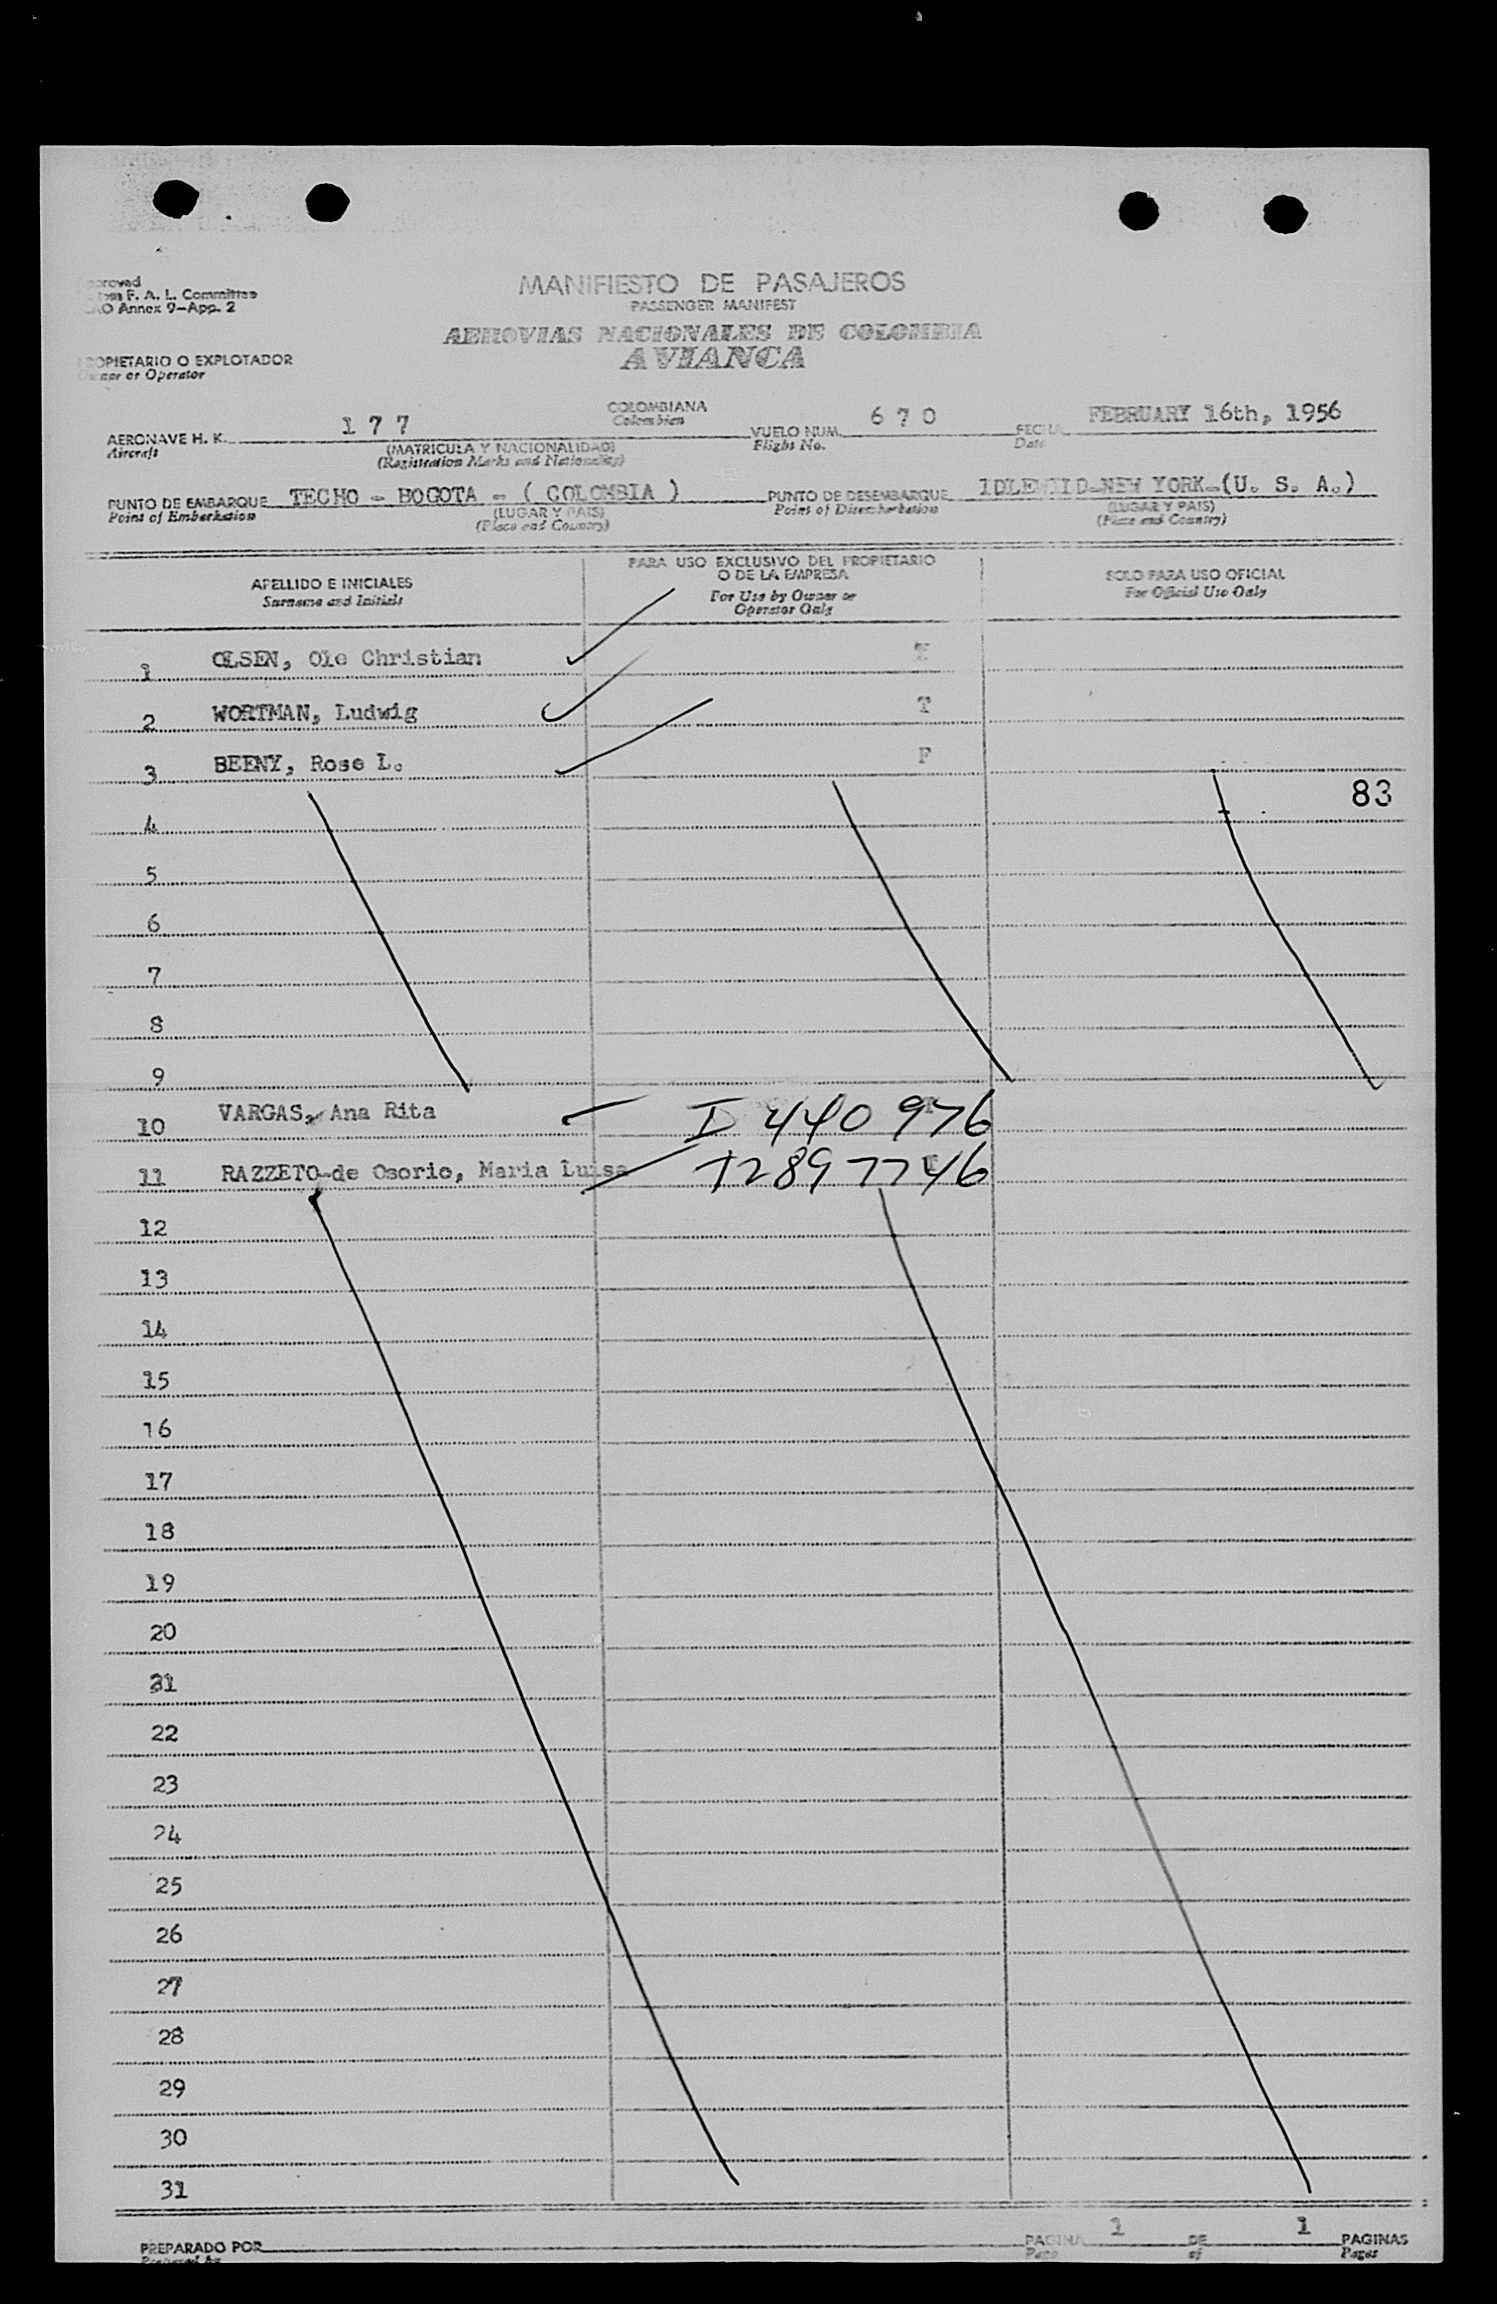 MANIFIESTO DE PASAJEROS
PASSENGER MANIFEST
AEROVIAS NACIONALES DE COLOMBIA
AVIANCA
F. A. L. Committee
Annex 9-App. 2
O EXPLOTADOR
or Operator
AERONAVE H. K. 177
Aircraft
(MATRICULA Y NACIONALIDAD)
(Registration Marks and Nationality)
COLOMBIANA
Colombian
VUELO NUM. 670
Flight No.
FECHA FEBRUARY 16th, 1956
Date
PUNTO DE EMBARQUE TECHO - BOGOTA - ( COLOMBIA )
Point of Embarkation
(LUGAR Y PAIS)
(Place and Country)
PUNTO DE DESEMBARQUE IDLEWILD-NEW YORK-(U. S. A.)
Point of Disembarkation
(LUGAR Y PAIS)
(Place and Country)
APELLIDO E INICIALES
Surname and Initials
PARA USO EXCLUSIVO DEL PROPIETARIO
O DE LA EMPRESA
For Use by Owner or
Operator Only
SOLO PARA USO OFICIAL
For Official Use Only
1 OLSEN, Ole Christian
2 WORTMAN, Ludwig T
3 BEENY, Rose L. F
83
4
5
6
7
8
9
10 VARGAS, Ana Rita I 440 976
11 RAZZETO-de Osorio, Maria Luisa I2897746
12
13
14
15
16
17
18
19
20
21
22
23
24
25
26
27
28
29
30
31
PREPARADO POR
Prepared by
PAGINA 1 DE 1 PAGINAS
Page of Pages